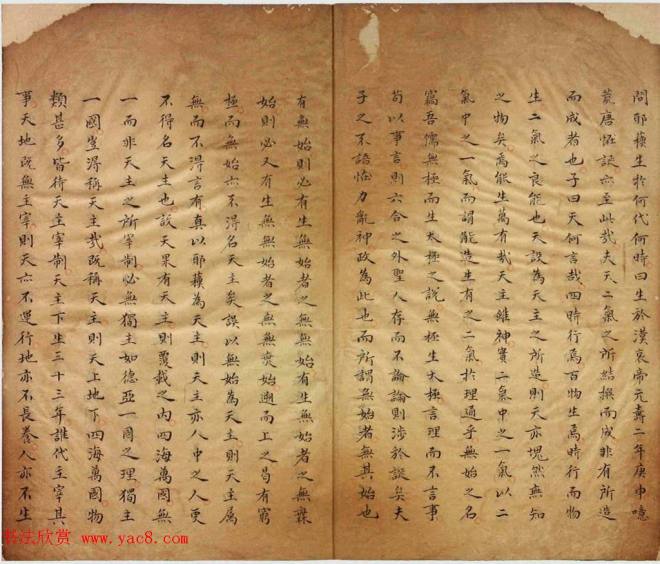 問耶穌生於何代何時曰生於漢哀帝元壽二年庚申噫
荒唐怪誕亦至此哉夫天二氣之所結撰而成非有所造
而成者也子曰天何言哉四時行焉百物生焉時行而物
生二氣之良能也天設為天主之所造則天亦塊然無知
之物矣焉能生萬有哉天主雖神實二氣中之一氣以二
氣中之一氣而謂能造生有之二氣於理通乎無始之名
竊吾儒無極而生太極之說無極生太極言理而不言事
苟以事言則六合之外聖人存而不論論則涉於誕矣夫
子之不語怪力亂神政為此也而所謂無始者無其始也
有無始則必有生無始者之無無始有生無始者之無無
始則必又有生無無始者之無無無始遡而上之曷有窮
極而無始亦不得名天主矣誤以無始為天主則天主屬
無而不得言有真以耶穌為天主則天主亦人中之人更
不得名天主也設天果有天主則覆載之内四海萬國無
一而非天主之所宰制必無獨主如德亞一國之理獨主
一國豈得稱天主哉既稱天主則天上地下四海萬國物
類甚多皆待天主宰制天主下生三十三年誰代主宰其
事天地既無主宰則天亦不運行地亦不長養人亦不生
书法欣赏：www.yac8.com